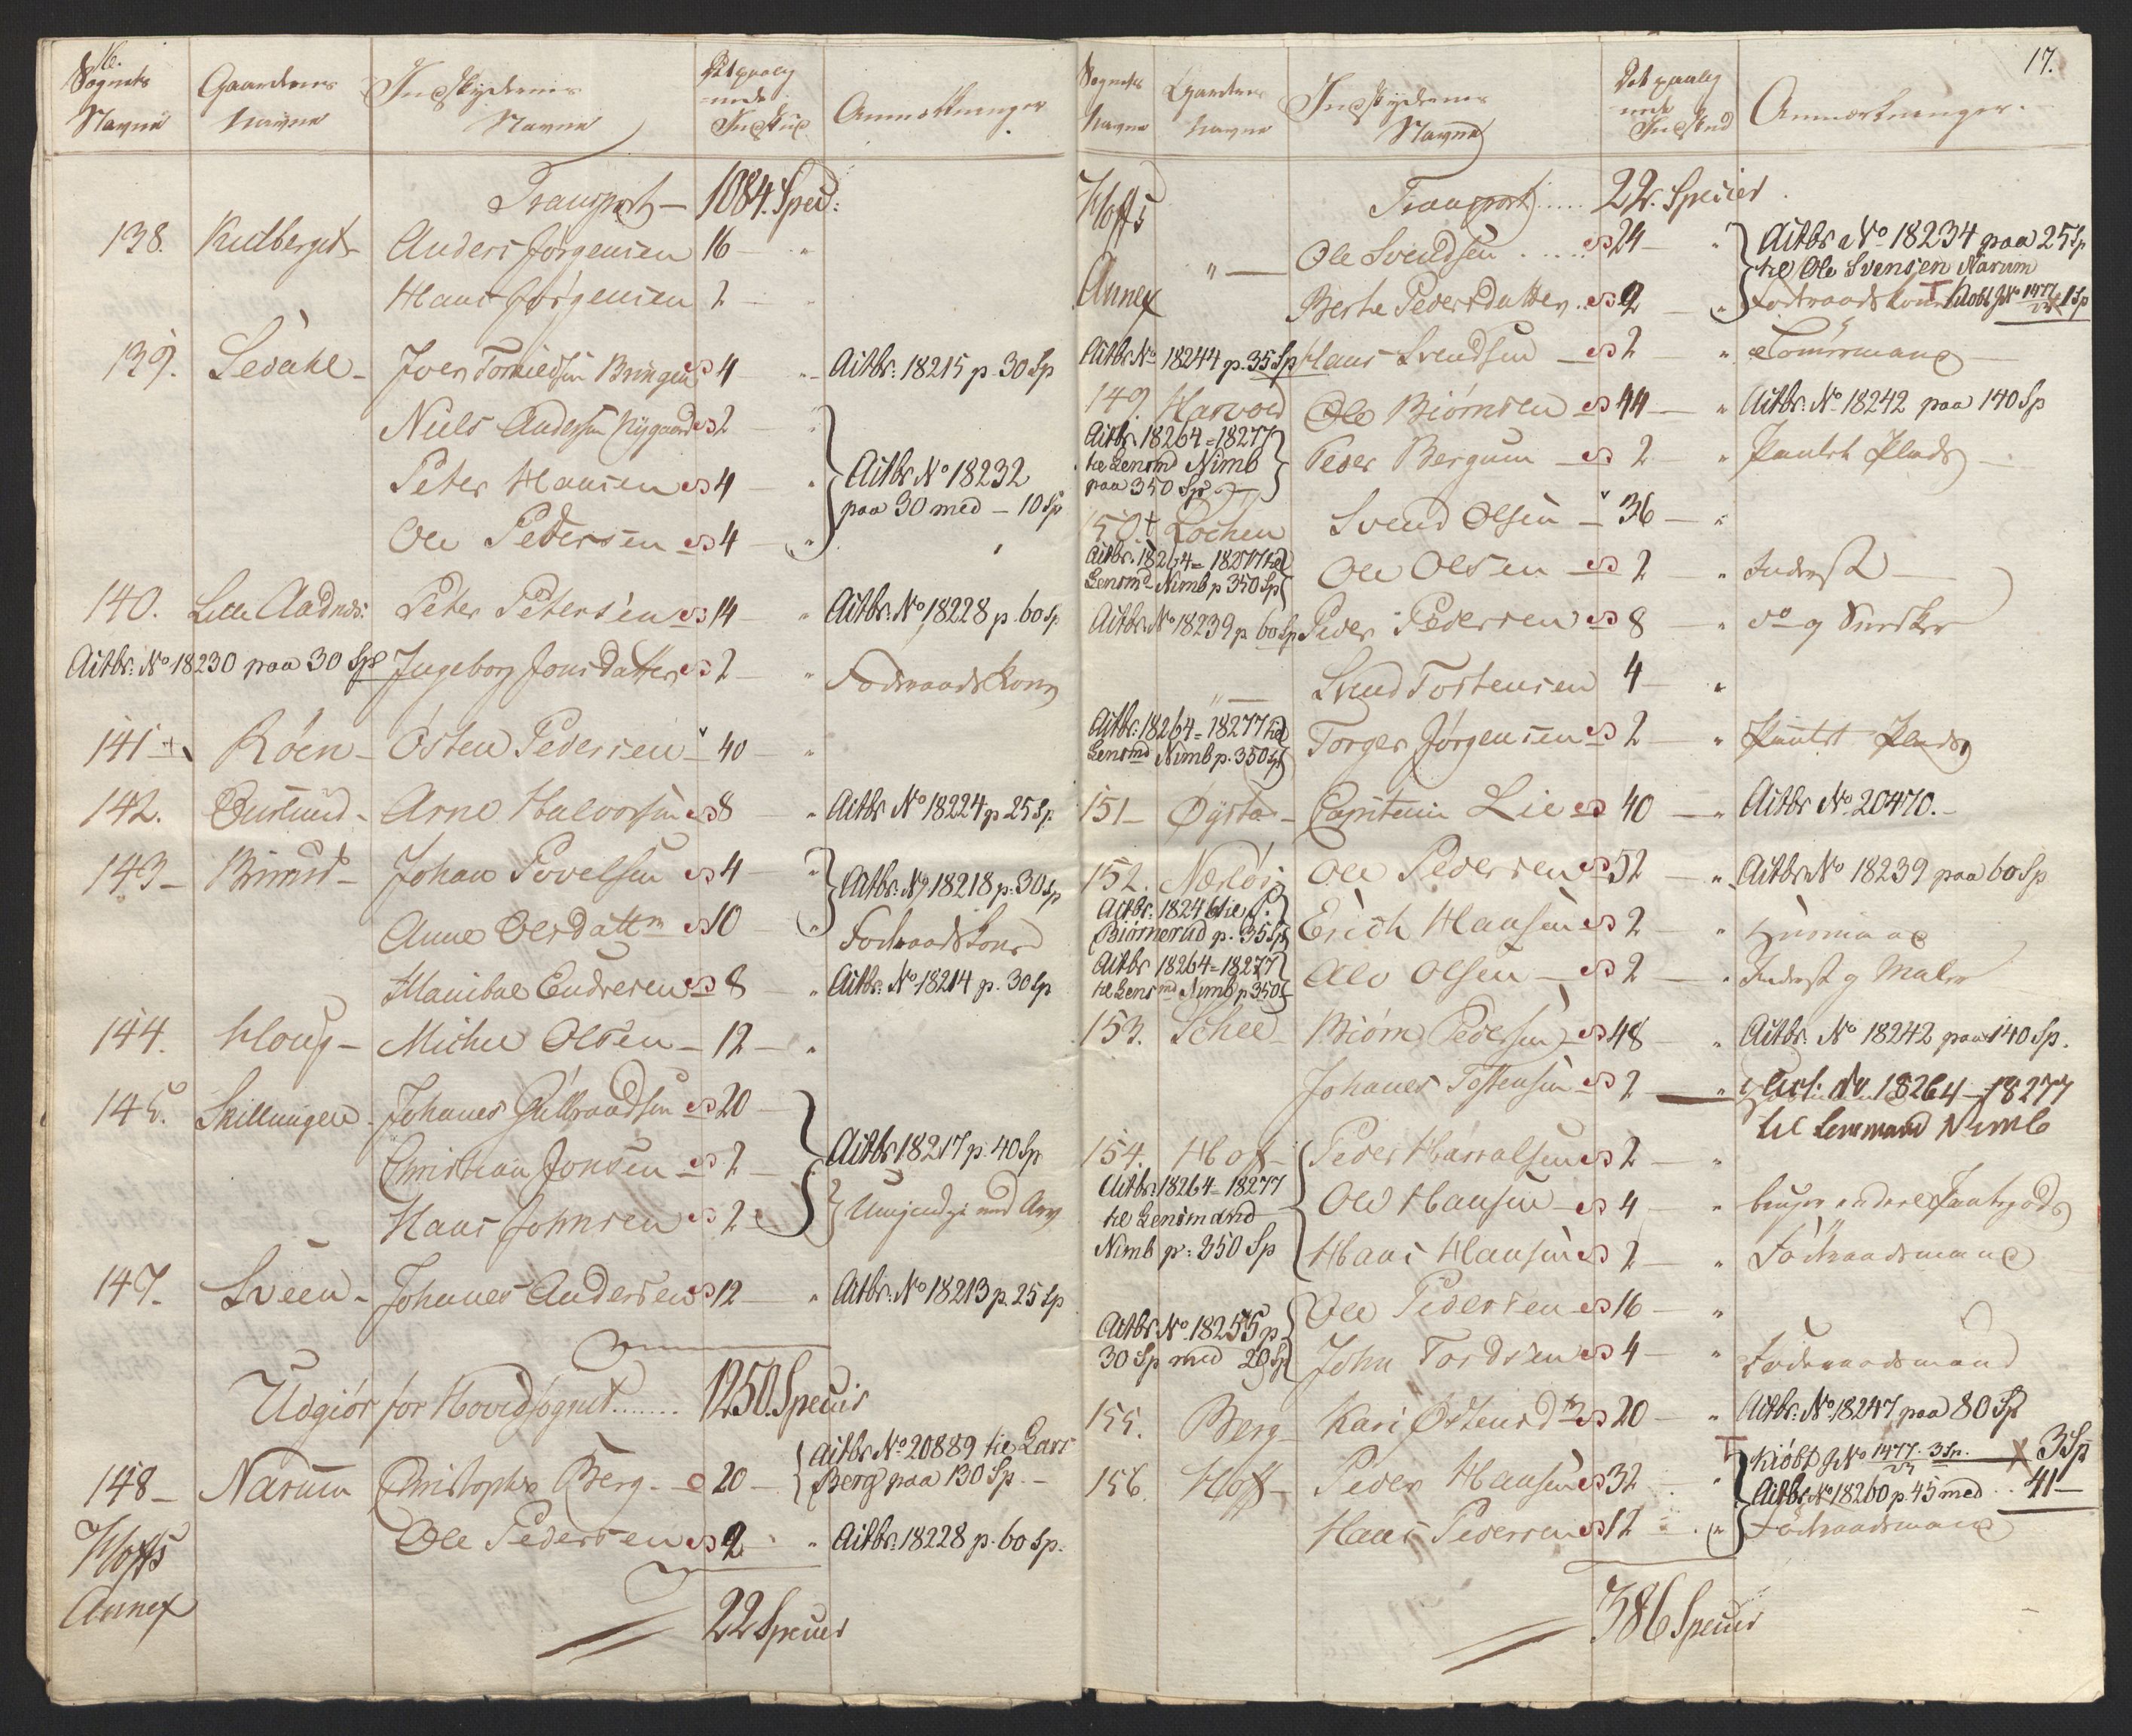 16.
Sognets Navne | Gaardenes Navne | Indskydernes Navne | Det paalignede Indskud | Anmærkninger
Transport — 1084. Specd:
138. Kulberget — Anders Jørgensen 16 — "
Hans Jørgensen 2 — "
139. Sedahl — Joen Tomesen Bringen 4 — " Actbr: 18215 p. 30 Sp
Niels Andersen Nygaard 2 — "
Peter Hansen 4 — " Actbr No 18232
paa 30 med — 10 Sp
Ole Pedersen 4 — "
140. Lille Aadnes: Peter Petersen 14 — " Actbr. No 18228 p. 60 Sp
Actbr: No 18230 paa 30 Sp Ingeborg Jonsdatter 2 — " Fodraadskone
141 + Röen — Östen Pedersen 40 — "
142. Arne Halvorsen 8 — " Actbr No 18224 p 25 Sp.
143 — Johan Povelsen 4 — " Actbr. No 18218 p. 30 Sp
Anne Olsdattr 10 — " Fodraadskone
Hanibal Endresen 8 — " Actbr. No 18214 p. 30 Sp
144. Houg — Michel Olsen — 12 — "
145. Skillungen — Johanes Gulbrandsen 20 —
Christian Jonsen 2 — Actbr 18217 p. 40 Sp
Hans Johnsen 2
147. Sveen — Johanes Andersen 12 — " Actbr. No 18213 p. 25 Sp
Udgiör for Hovedsognet ....... 1250. Specier
148 — Narum Christopher Berg — 20 — Actbr No 20889 til Lars
Berg paa 130 Sp. —
Hoffs Annex Ole Pedersen 2 " Actbr: 18228 p. 60 Sp.
22 Specier
17.
Sognets Navne | Gaardenes Navne | Indskydernes Navne | Det paalignede Indskud | Anmærkninger.
Hoffs Transport ..... 22. Specier
Annex " — Ole Svendsen ..... 24 — " Actbr No 18234 paa 25 Sp
til Ole Svensen Narum
Berthe Pedersdatter .. 2 — " Fodraadskone Kiöbt J No 1477 1 Sp
Actbr No 18244 p. 35 Sp Hans Svendsen — 2 " Tömmermand
149. Harvold Ole Biörnsen 44 — " Actbr. No 18242 paa 140 Sp
Actbr. 18264 = 18277
til Lensmd Nimb
paa 350 Sp
Peder Bergum — 2 "
150 + Lochen Svend Olsen — 36 — "
Actbr. 18264 = 18277 til
Lensmd Nimb p 350 Sp
Ole Olsen — 2 " Inderst —
Actbr. No 18239 p 60 Sp Peder Pedersen 8 — " do og Snedker
" — Svend Tostensen 4 — "
Actbr. 18264 = 18277 til
Lensmd Nimb p. 350 Sp
Torger Jörgensen 2 — "
151 — Øysta — Capitain Lie 40 — " Actbr No 20470. —
152. Ole Pedersen 52 — " Actbr No 18239 paa 60 Sp
Actbr. 18246 til
Biörnerud p. 35 Sp
Erich Hansen 2 — " Husmand
Actbr 18264 = 18277
til Lensmd Nimb p 350
Ole Olsen — 2 — " Inderst og Maler
153. Schee — Biörn Pedersen — 48 — " Actbr. No 18242 paa 140 Sp.
Johanes Tostensen 2 — " Act: No 18264 — 18277
til Lensmand Nimb
154. Hof — Peder Harralsen 2 — "
Actbr. 18264 = 18277
til Lensmand
Nimb p: 250 Sp
Ole Hansen — 4 — "
Hans Hansen 2 — " Födraadsmand
Actbr. No. 18255 p
30 Sp med 20 Sp
Ole Pedersen 16 — "
John Tordsen 4 — " Födraadsmand
155. Berg — Kari Östensdtr 20 — " Actbr. No 18247 paa 80 Sp
156. Hoff — Peder Hansen 32 — " Kiöbt J No 1477. 3 Sp. — 3 Sp
Actbr No 18260 p. 45 med .. 41 —
Hans Pedersen 12 — " Födraadsmand
386 Specier